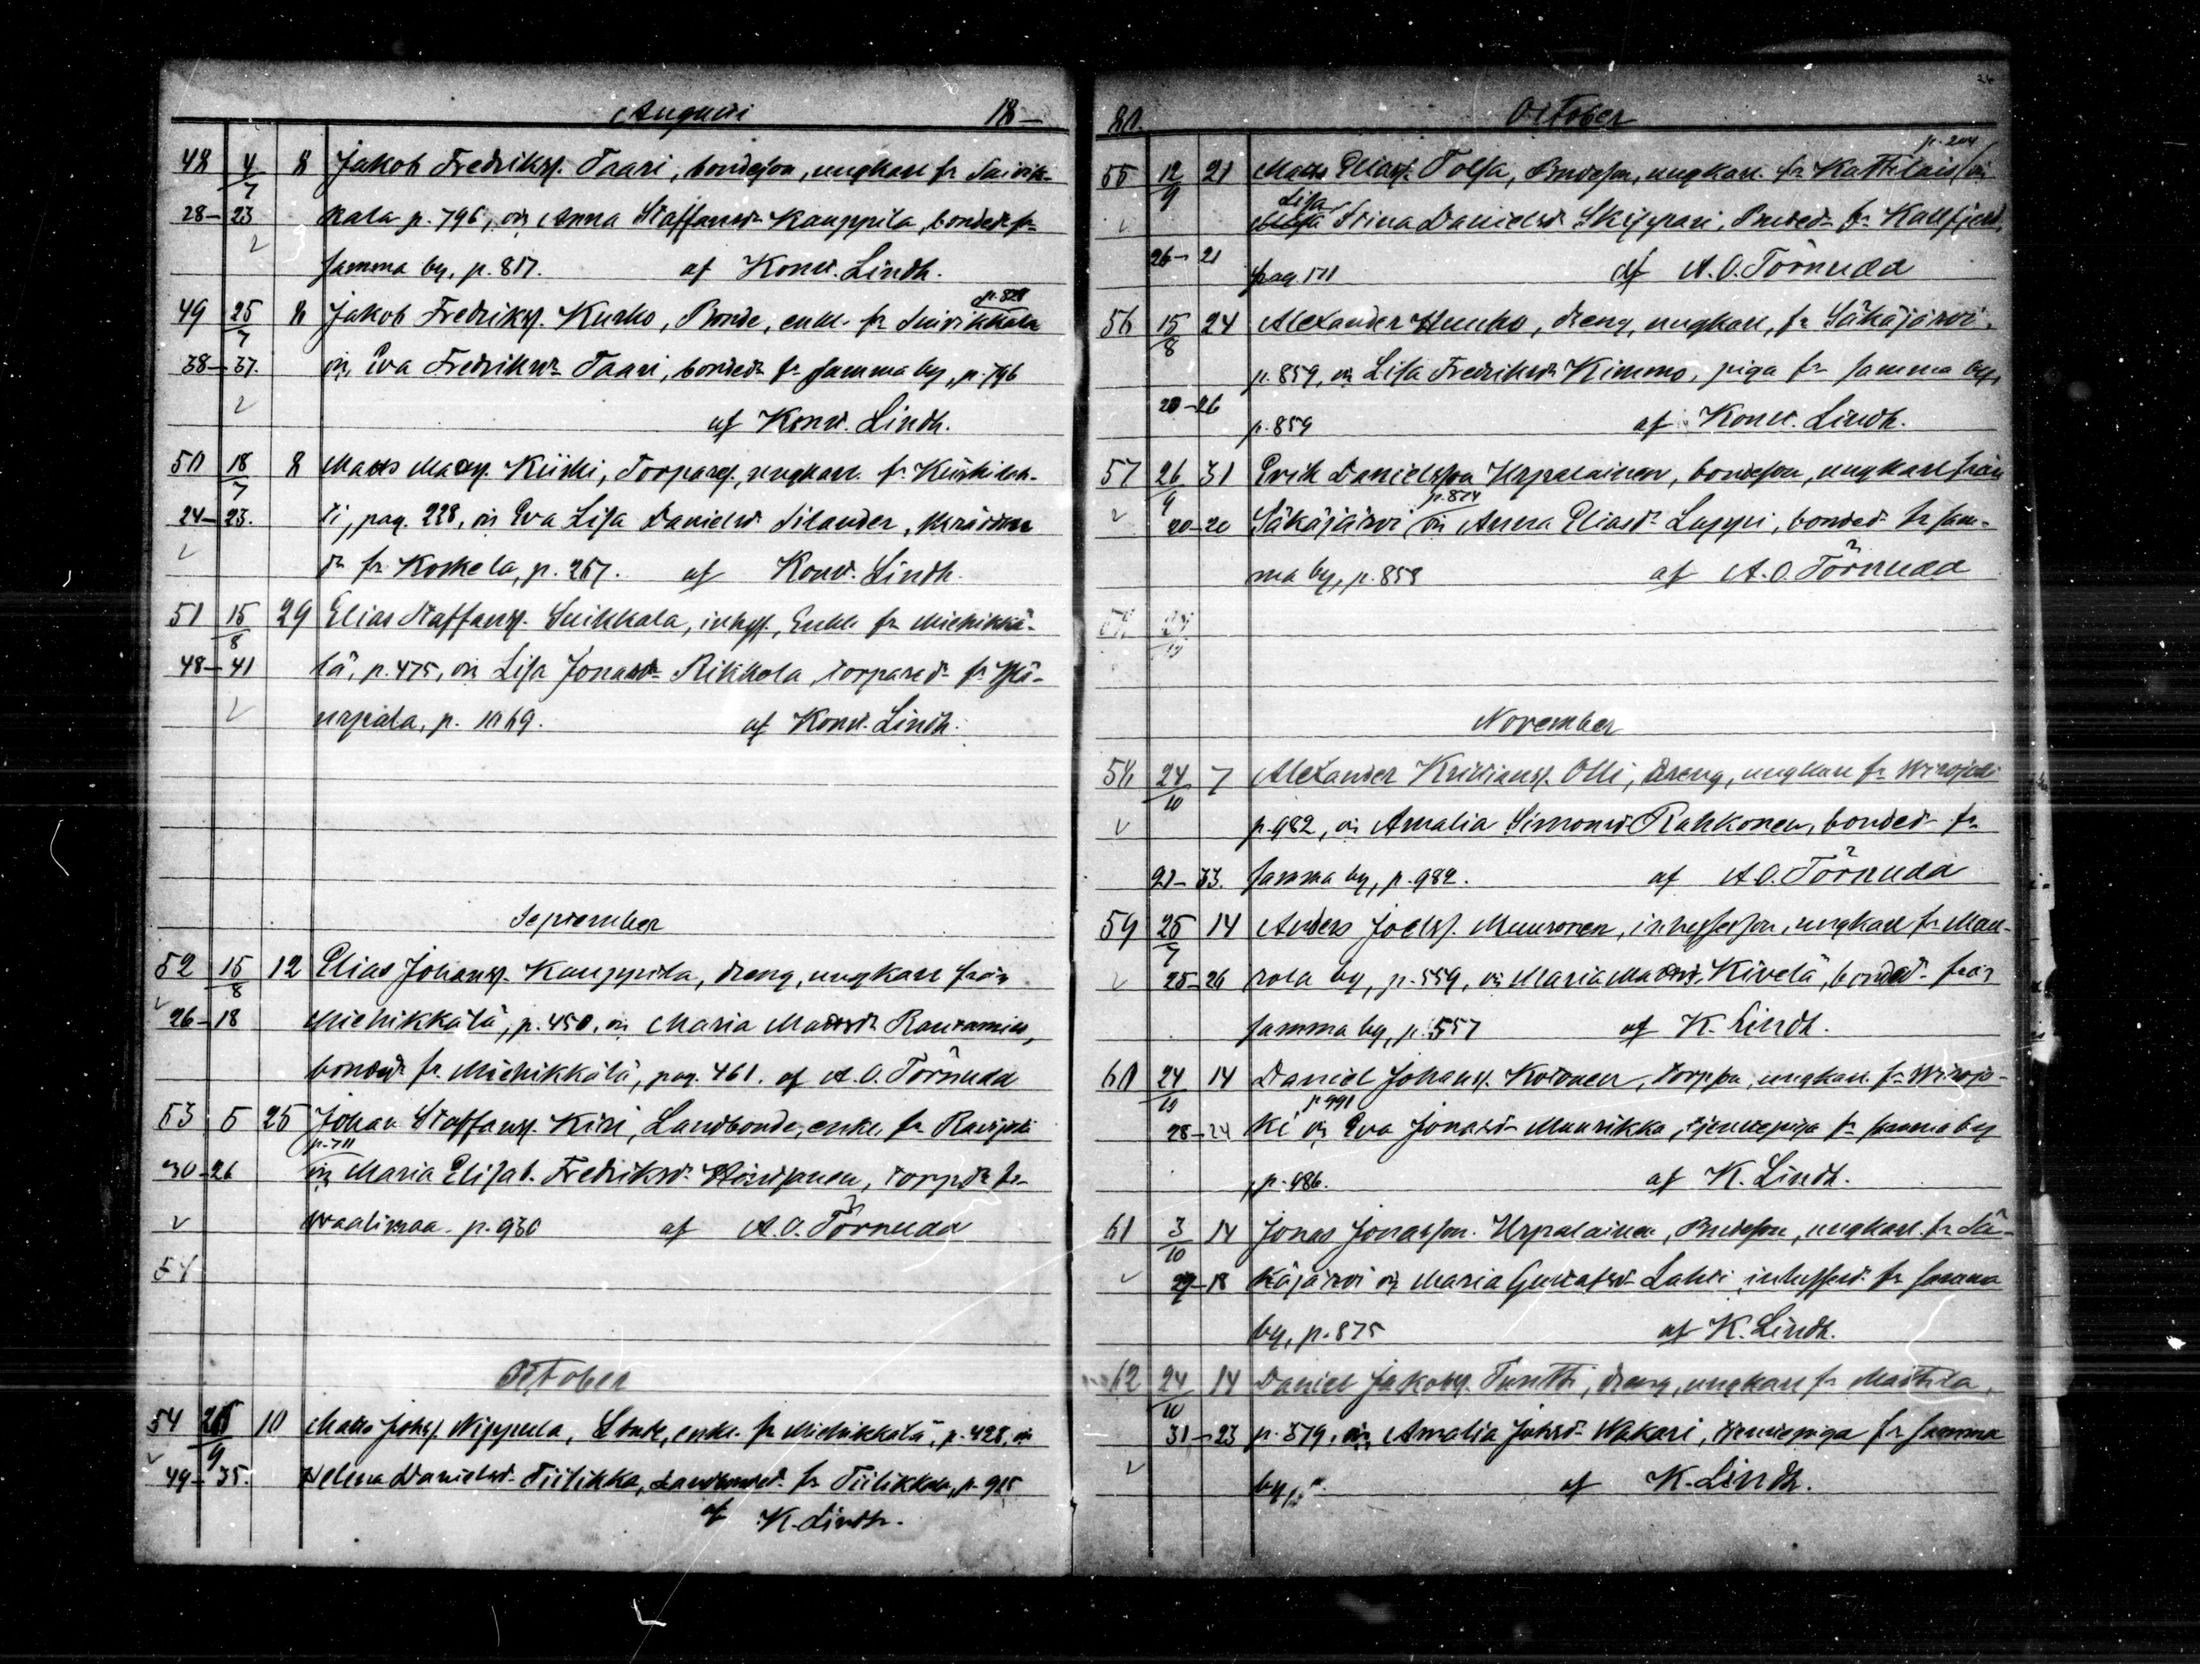 Augusti 18—
48 4/7 8 Jakob Fredrikss. Taari, bondeson, ungkarl fr. Suivik-
28—23 kala p. 796, o. Anna Staffansd. Kauppila, bonded. fr.
samma by, p. 817. af Konr. Lindh.
p. 828
49 25/7 8 Jakob Fredriks. Kurko, Bonde, enkl. fr. Suivikkala
38—37. o. Eva Fredriksd. Taari, bonded. fr. samma by, p. 796
af Konr. Lindh.
50 18/7 8 Matts Matss. Kiiski, Torpares., ungkarl fr. Kiiskilah-
24—23. ti, pag. 228, o. Eva Lisa Danielsd. Silander,
d. fr. Koskela, p. 267. af Konr. Lindh.
51 15/8 29 Elias Staffanss. Suikkala, inhys., Enkl. fr. Miehikkä-
48—41 lä, p. 475, o. Lisa Jonasd. Rikkola, torpared. fr. Ylä-
urpala, p. 1069. af Konr. Lindh.
September
52 15/8 12 Elias Johanss. Kauppila, dreng, ungkarl från
26—18 Miehikkälä, p. 450, o. Maria Mattsd. Rautamies,
bonded. fr. Miehikkälä, pag. 461. af A. O. Törnudd
53 5 25 Johan Staffanss. Kiri, Landbonde, enkl. fr. Ravijoki
p. 711
30—26 o. Maria Elisab. Fredriksd. torpd. fr.
Vaalimaa p. 930 af A. O. Törnudd
54
October
54 9 10 Matts Johss. Nippula, enkl. fr. Miehikkälä, p. 428, o.
49—35. Helena Danielsd. Tiilikka, Landbonded. fr. Tiilikkala, p. 915
af K. Lindh.
81. October
p. 204
55 12/9 21 Matts Eliass. Tolsa, Bondeson, ungkarl fr. Kattilais o.
Lisa
Stina Danielsd. Skippari, Bonded. fr. Kallfjerd,
26—21 pag. 171 af A. O. Törnudd
56 15/8 24 Alexander Huuho, dreng, ungkarl, fr. Säkäjärvi,
p. 859, o. Lisa Fredriksd. Kimmo, piga fr. samma by,
20—26 p. 859 af Konr. Lindh.
57 26/9 31 Erik Danielsson Urpalainen, bondeson, ungkarl från
p. 874
20—20 Säkäjärvi o. Anna Eliasd. Luppi, bonded. fr. sam-
ma by, p. 858 af A. O. Törnudd
November
58 24/10 7 Alexander Kristianss. Olli, dreng, ungkarl fr. Wirojoki
p. 982, o. Amalia Simonsd. Rahkonen, bonded. fr.
21—33. samma by, p. 982. af A. O. Törnudd
59 25/7 14 Anders Joelss. Muuronen, inhysesson, ungkarl fr. Mau-
25—26 rola by, p. 559, o. Maria Mattsd. Kivelä, bonded. från
samma by, p. 557 af K. Lindh.
60 24/10 14 Daniel Johanss. Kotonen, torpson, ungkarl fr. Wirojo-
p. 991
28—24 ki o. Eva Jonasd. Muurikka, tjenstepiga fr. samma by
p. 986. af K. Lindh.
61 3/10 14 Jonas Jonasson Urpalainen, Bondeson, ungkarl fr. Sä-
29—18 käjärvi o. Maria Gustafsd. Lahti, inhysesd. fr. samma
by, p. 875 af K. Lindh.
62 24/10 14 Daniel Jakobss. Tuntti, dreng, ungkarl fr. Mattila,
31—23 p. 379, o. Amalia Johsd. Wakari, tjenstepiga fr. samma
by, p. af K. Lindh.